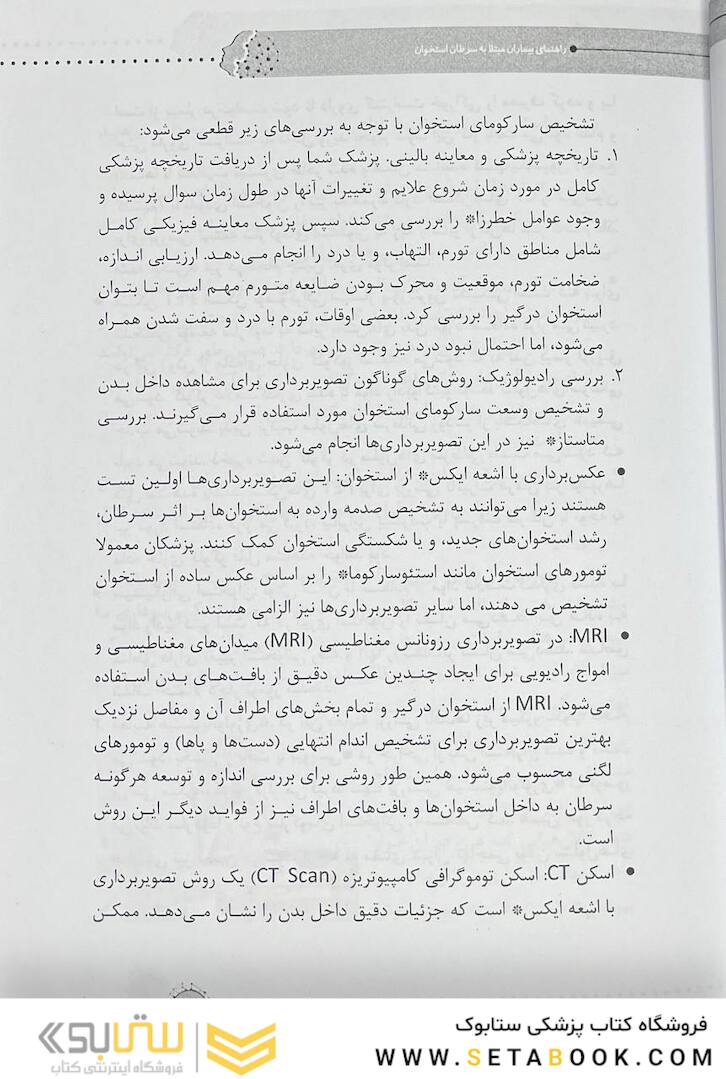 راهنمای بیماران مبتلا به سرطان استخوان
تشخیص سارکومای استخوان با توجه به بررسی‌های زیر قطعی می‌شود:
۱. تاریخچه پزشکی و معاینه بالینی. پزشک شما پس از دریافت تاریخچه پزشکی
کامل در مورد زمان شروع علایم و تغییرات آنها در طول زمان سوال پرسیده و
وجود عوامل خطرزا* را بررسی می‌کند. سپس پزشک معاینه فیزیکی کامل
شامل مناطق دارای تورم، التهاب، و یا درد را انجام می‌دهد. ارزیابی اندازه،
ضخامت تورم، موقعیت و محرک بودن ضایعه متورم مهم است تا بتوان
استخوان درگیر را بررسی کرد. بعضی اوقات، تورم با درد و سفت شدن همراه
می‌شود، اما احتمال نبود درد نیز وجود دارد.
۲. بررسی رادیولوژیک: روش‌های گوناگون تصویربرداری برای مشاهده داخل بدن
و تشخیص وسعت سارکومای استخوان مورد استفاده قرار می‌گیرند. بررسی
متاستاز* نیز در این تصویربرداری‌ها انجام می‌شود.
• عکس‌برداری با اشعه ایکس* از استخوان: این تصویربرداری‌ها اولین تست
هستند زیرا می‌توانند به تشخیص صدمه وارده به استخوان‌ها بر اثر سرطان،
رشد استخوان‌های جدید، و یا شکستگی استخوان کمک کنند. پزشکان معمولا
تومورهای استخوان مانند استئوسارکوما* را بر اساس عکس ساده از استخوان
تشخیص می دهند، اما سایر تصویربرداری‌ها نیز الزامی هستند.
• MRI: در تصویربرداری رزونانس مغناطیسی (MRI) میدان‌های مغناطیسی و
امواج رادیویی برای ایجاد چندین عکس دقیق از بافت‌های بدن استفاده
می‌شود. MRI از استخوان درگیر و تمام بخش‌های اطراف آن و مفاصل نزدیک
بهترین تصویربرداری برای تشخیص اندام انتهایی (دست‌ها و پاها) و تومورهای
لگنی محسوب می‌شود. همین طور روشی برای بررسی اندازه و توسعه هرگونه
سرطان به داخل استخوان‌ها و بافت‌های اطراف نیز از فواید دیگر این روش
است.
• اسکن CT: اسکن توموگرافی کامپیوتریزه (CT Scan) یک روش تصویربرداری
با اشعه ایکس* است که جزئیات دقیق داخل بدن را نشان می‌دهد. ممکن
فروشگاه کتاب پزشکی ستابوک
WWW.SETABOOK.COM
ستابوک
فروشگاه اینترنتی کتاب